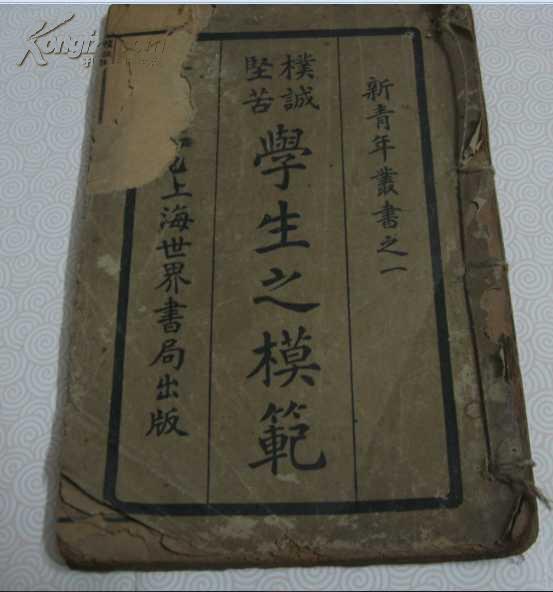 新青年叢書之一
樸誠
堅苦
學生之模範
上海世界書局出版
Kongfz.com